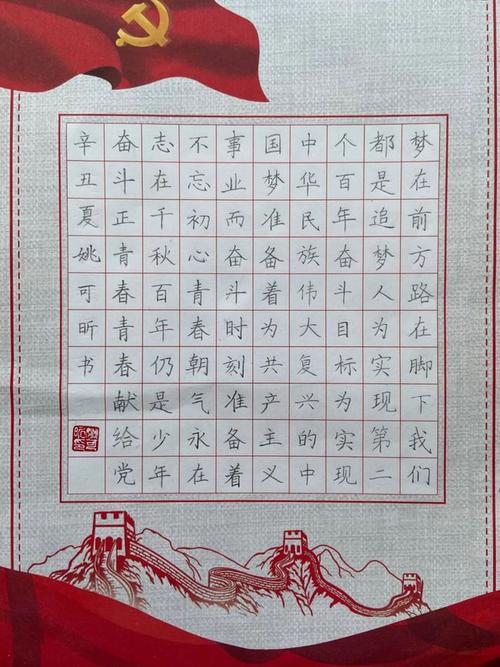 梦在前方路在脚下我们
都是追梦人为实现第二
个百年奋斗目标为实现
中华民族伟大复兴的中
国梦准备着为共产主义
事业而奋斗时刻准备着
不忘初心青春朝气永在
志在千秋百年仍是少年
奋斗正青春青春献给党
辛丑夏姚可昕书